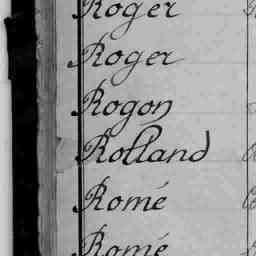 Roger
Roger
Rogon
Rolland
Romé
Romé